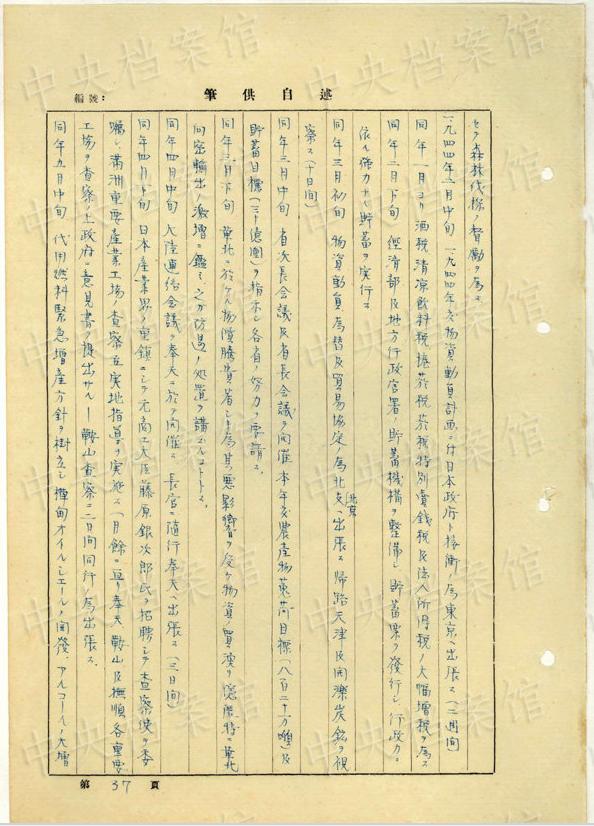 筆供自述
編號：
セク森林伐採ノ督励ヲ為ス
一九四四年一月中旬 一九四四年度物資動員計画ニ付日本政府ト接衝ノ為東京ヘ出張ス（二週間）
同年一月ヨリ酒税清凉飲料税捲菸税菸税特別賣銭税及法人所得税ノ大幅増税ヲ為ス
同年二月下旬 経済部及地方行政官署ノ貯蓄機構ヲ整備シ貯蓄票ヲ発行シ行政力ニ
依ル強力ナル貯蓄ヲ実行ス
同年三月初旬 物資動員為替及貿易協定ノ為北支北京ヘ出張ス 帰路天津及開灤炭鉱ヲ視
察ス（十日間）
同年三月中旬 省次長会議及省長会議ヲ開催本年度農産物蒐荷目標（八百二十万噸）及
貯蓄目標（三十億圓）ヲ指示シ各省ノ努力ヲ要請ス
同年三月下旬 華北ニ於ケル物價騰貴著シキ為其ノ悪影響ヲ受ケ物資ノ買漁リ隠匿特ニ華北
向密輸出ノ激増ニ鑑ミ之ガ防遏ノ処置ヲ講ズルコトトス
同年四月中旬 大陸連絡会議ヲ奉天ニ於テ開催ス 長官ニ随行奉天ヘ出張ス（三日間）
同年四月下旬 日本産業界ノ重鎮ニシテ元商工大臣藤原銀次郎氏ヲ招聘シテ査察使ヲ委
囑シ、満洲重要産業工場ノ査察並実地指導ヲ実施ス（一月餘ニ亘リ奉天鞍山及撫順各重要
工場ヲ査察ノ上政府ニ意見書ヲ提出サル）鞍山査察ニ二日間同行ノ為出張ス
同年五月中旬 代用燃料緊急増産方針ヲ樹立シ樺甸オイルシエールノ開発 アルコールノ大増
第 37 頁
中央档案馆